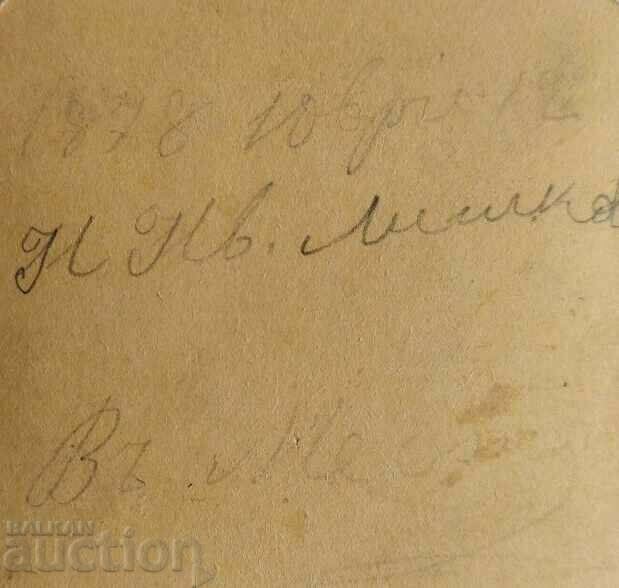 1878 10ври 12
Н Ив. Мишка
Въ
BALKAN
auction